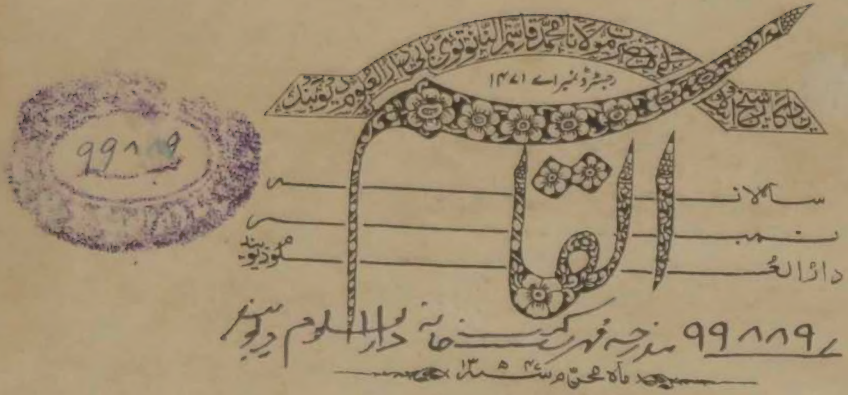 حضرت مولانا محمد قاسم النانوتوی بانی دارالعلوم دیوبند
رجسٹرڈ نمبر اے ۱۴۷۱
۹۹۸۸۹
القاسم
سالانہ
نمبر
دارالعلوم دیوبند
۹۹۸۸۹ مندرجہ فہرست کتب خانہ دارالعلوم دیوبند
ماہ محرم ۱۳۴۷ھ